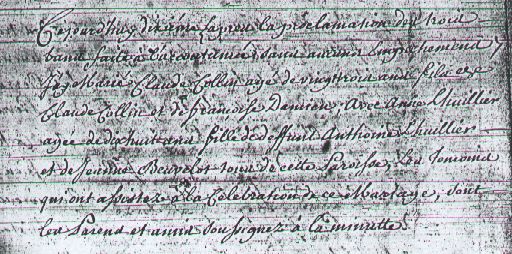 Cejourdhuy dixième apres la proclamation de trois
bans faite à l'accoutumée, sans aucun empechement
J'ay Marié Claude Collin agé de vingt trois ans fils de
Claude Collin et de françoise Damien Avec Anne Lhuillier
agée de dix huit ans fille de deffunt Anthoine Lhuillier
et de Jeanne Beuvelot tous de cette Paroisse, Les temoins
qui ont assistez a la Celebration de ce Mariage, sont
les Parens et amis soussignez à la minutte